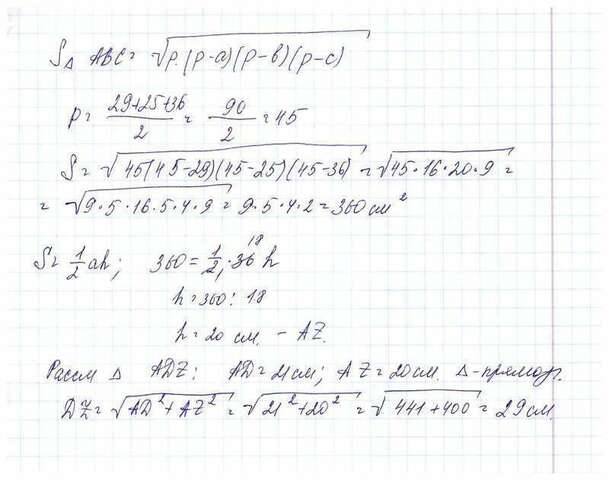 S△ ABC = √p·(p-a)(p-b)(p-c)
p = (29+25+36)/2 = 90/2 = 45
S = √45(45-29)(45-25)(45-36) = √45·16·20·9 =
= √9·5·16·5·4·9 = 9·5·4·2 = 360 см²
S = 1/2 ah; 360 = 1/2 · 36 h 18
h = 360 : 18
h = 20 см. - AZ.
Рассм △ ADZ: AD = 21 см; AZ = 20 см. △-прямоуг.
DZ = √AD²+AZ² = √21²+20² = √441+400 = 29 см.